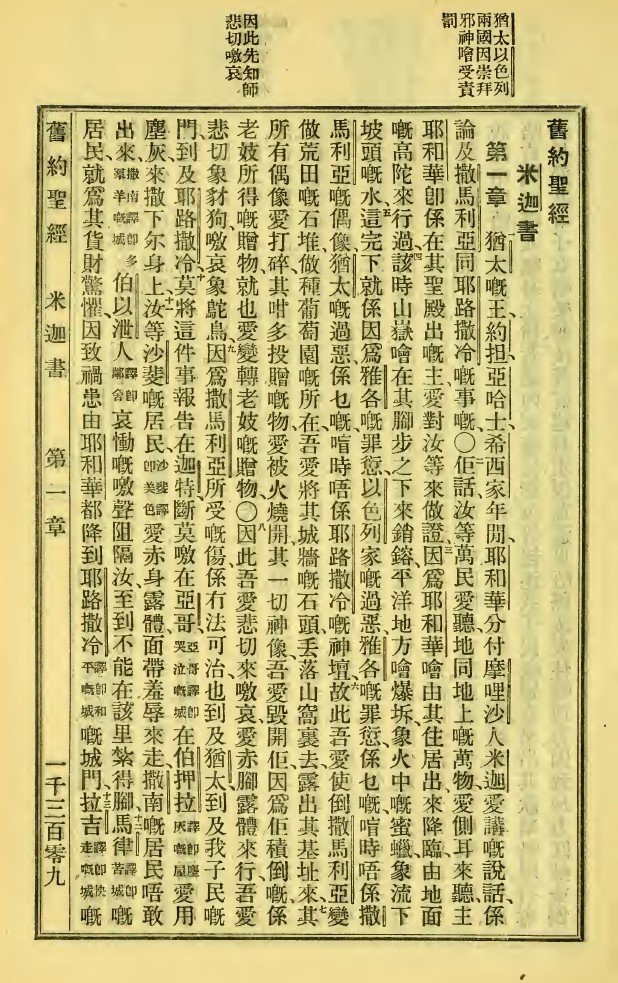 猶太以色列
兩國因崇拜
邪神噲受責
罰
因此先知師
悲切噭哀
舊約聖經
米迦書
第一章 猶太嘅王、約担、亞哈士、希西家年間、耶和華分付摩哩沙人米迦愛講嘅說話、係
論及撒馬利亞同耶路撒冷嘅事嘅〇二佢話汝等萬民愛聽、地同地上嘅萬物愛側耳來聽、主
耶和華卽係在其聖殿出嘅主愛對汝等來做證、三因爲耶和華噲由其住居出來降臨由地面
嘅高陀來行過、四該時山嶽噲在其腳步之下來銷鎔、平洋地方噲爆坼、象火中嘅蜜蠟、象流下
坡頭嘅水、五這完下就係因爲雅各嘅罪愆、以色列家嘅過惡、雅各嘅罪愆係乜嘅、喑時唔係撒
馬利亞嘅偶像、猶太嘅過惡係乜嘅、喑時唔係耶路撒冷嘅神壇、六故此吾愛使倒撒馬利亞變
做荒田嘅石堆、做種葡萄園嘅所在、吾愛將其城牆嘅石頭丟落山窩裏去、露出其基址來、七其
所有偶像愛打碎、其咁多投贈嘅物愛被火燒開、其一切神像吾愛毀開佢、因爲佢積倒嘅、係
老妓所得嘅贈物、就也愛變轉老妓嘅贈物〇八因此吾愛悲切來噭哀、愛赤腳露體來行、吾愛
悲切象豺狗、噭哀象鴕鳥、九因爲撒馬利亞所受嘅傷、係冇法可治、也到及猶太、到及我子民嘅
門、到及耶路撒冷、十莫將這件事報告在迦特、斷莫噭在亞哥、亞哥譯卽哭泣嘅城在伯押拉譯卽塵灰嘅屋愛用
塵灰來撒下尔身上、十一汝等沙斐嘅居民沙斐譯卽美色愛赤身露體面帶羞辱來走、撒南嘅居民唔敢
出來、撒南譯卽多羣羊嘅城伯以泄人譯卽鄰舍哀慟嘅噭聲阻隔汝、至到不能在該里紮得腳、十二馬律譯卽苦城嘅
居民、就爲其貨財驚懼、因致禍患由耶和華都降到耶路撒冷譯卽和平嘅城嘅城門、十三拉吉譯卽快走嘅城嘅
舊約聖經 米迦書 第一章 一千三百零九